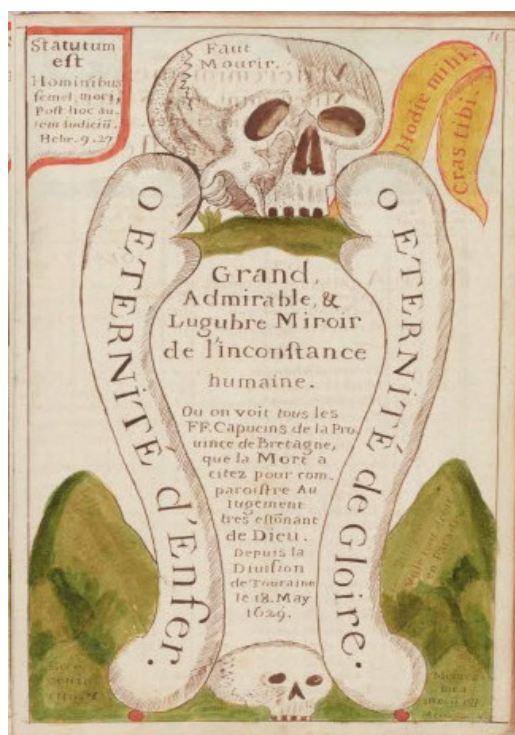 Statutum
est
Hominibus
semel mori,
Post hoc au-
tem Iudiciū.
Hebr. 9. 27
Faut
Mourir.
Hodie mihi.
Cras tibi.
O ETERNITÉ d'Enfer.
O ETERNITÉ de Gloire.
Grand,
Admirable, &
Lugubre Miroir
de l'inconstance
humaine.
Ou on voit tous les
FF. Capucins de la Pro
uince de Bretagne,
que la Mort a
citez pour com-
paroistre Au
Iugement
tres estonant
de Dieu.
Depuis la
Diuision
de Touraine
le 18. May
1629.